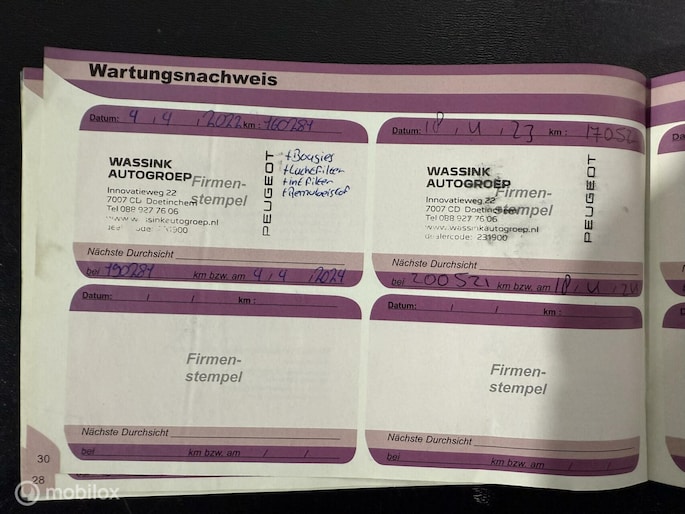 Wartungsnachweis
Datum: 4 , 4 , 2022 km : 160284
WASSINK
AUTOGROEP
Firmen-
stempel
Innovatieweg 22
7007 CD Doetinchem
Tel 088 927 76 06
www.wassinkautogroep.nl
code: 231900
PEUGEOT
+Bougies
+Luchtfilter
+intfilter
+Remvloeistof
Nächste Durchsicht
bei 190284 km bzw. am 4 / 4 / 2024
Datum: 18 , 4 , 23 km : 170521
WASSINK
AUTOGROEP
Firmen-
stempel
Innovatieweg 22
7007 CD Doetinchem
Tel 088 927 76 06
www.wassinkautogroep.nl
dealercode: 231900
PEUGEOT
Nächste Durchsicht
bei 200521 km bzw. am 18 , 4 , 24
Datum: / / km :
Firmen-
stempel
Nächste Durchsicht
bei km bzw. am / /
Datum: / / km :
Firmen-
stempel
Nächste Durchsicht
bei km bzw. am / /
30
28
mobilox